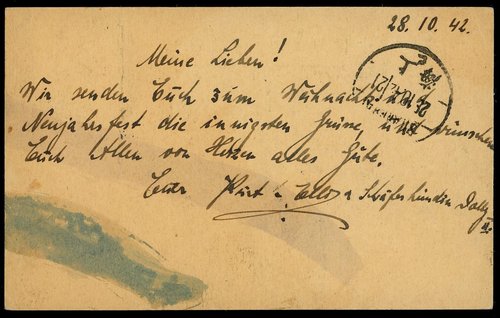 28.10.42.
Meine Lieben!
Wir senden Euch zum Weihnachts- u.
Neujahrsfest die innigsten Grüsse, und wünschen
Euch Allen von Herzen alles Gute.
Eure Kurt &  Schäferhündin Dolly